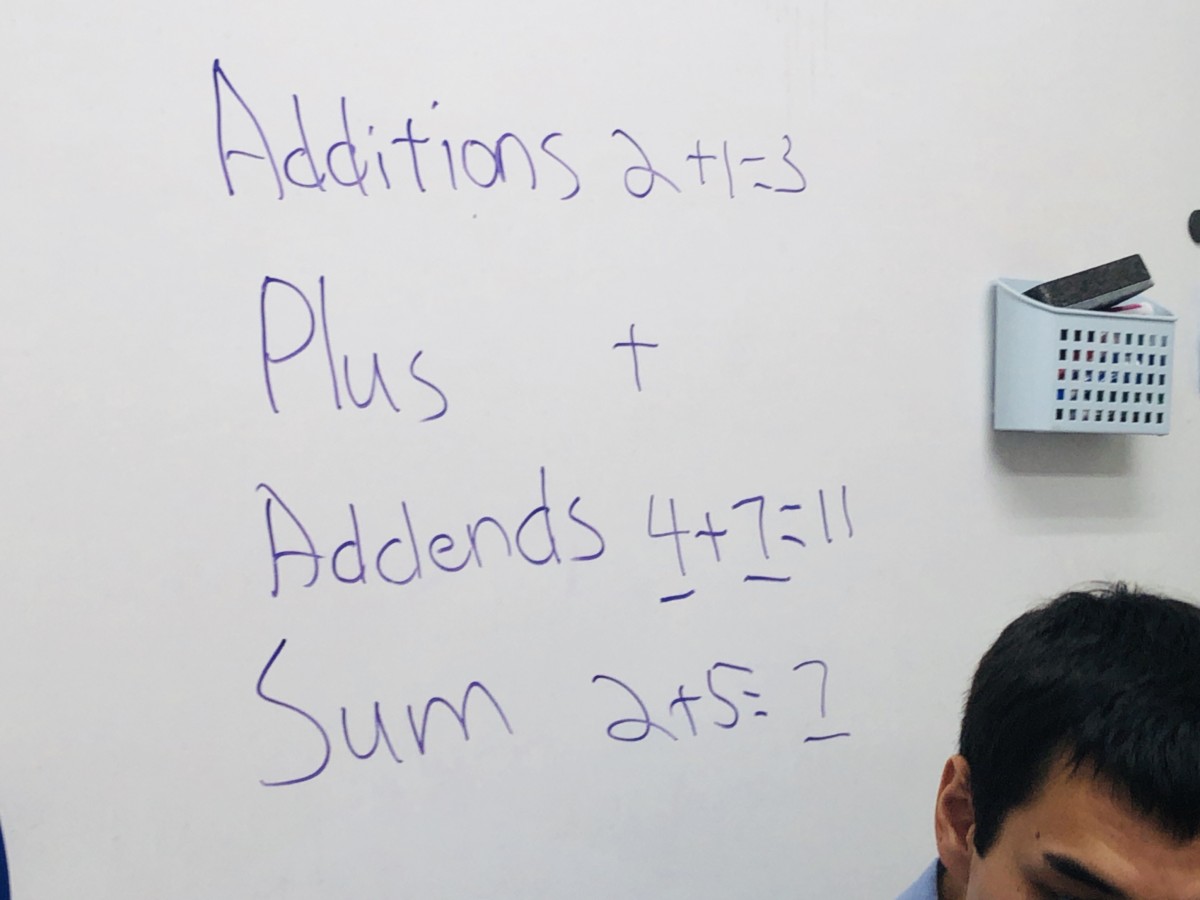 Additions 2+1=3
Plus +
Addends 4+7=11
Sum 2+5=7